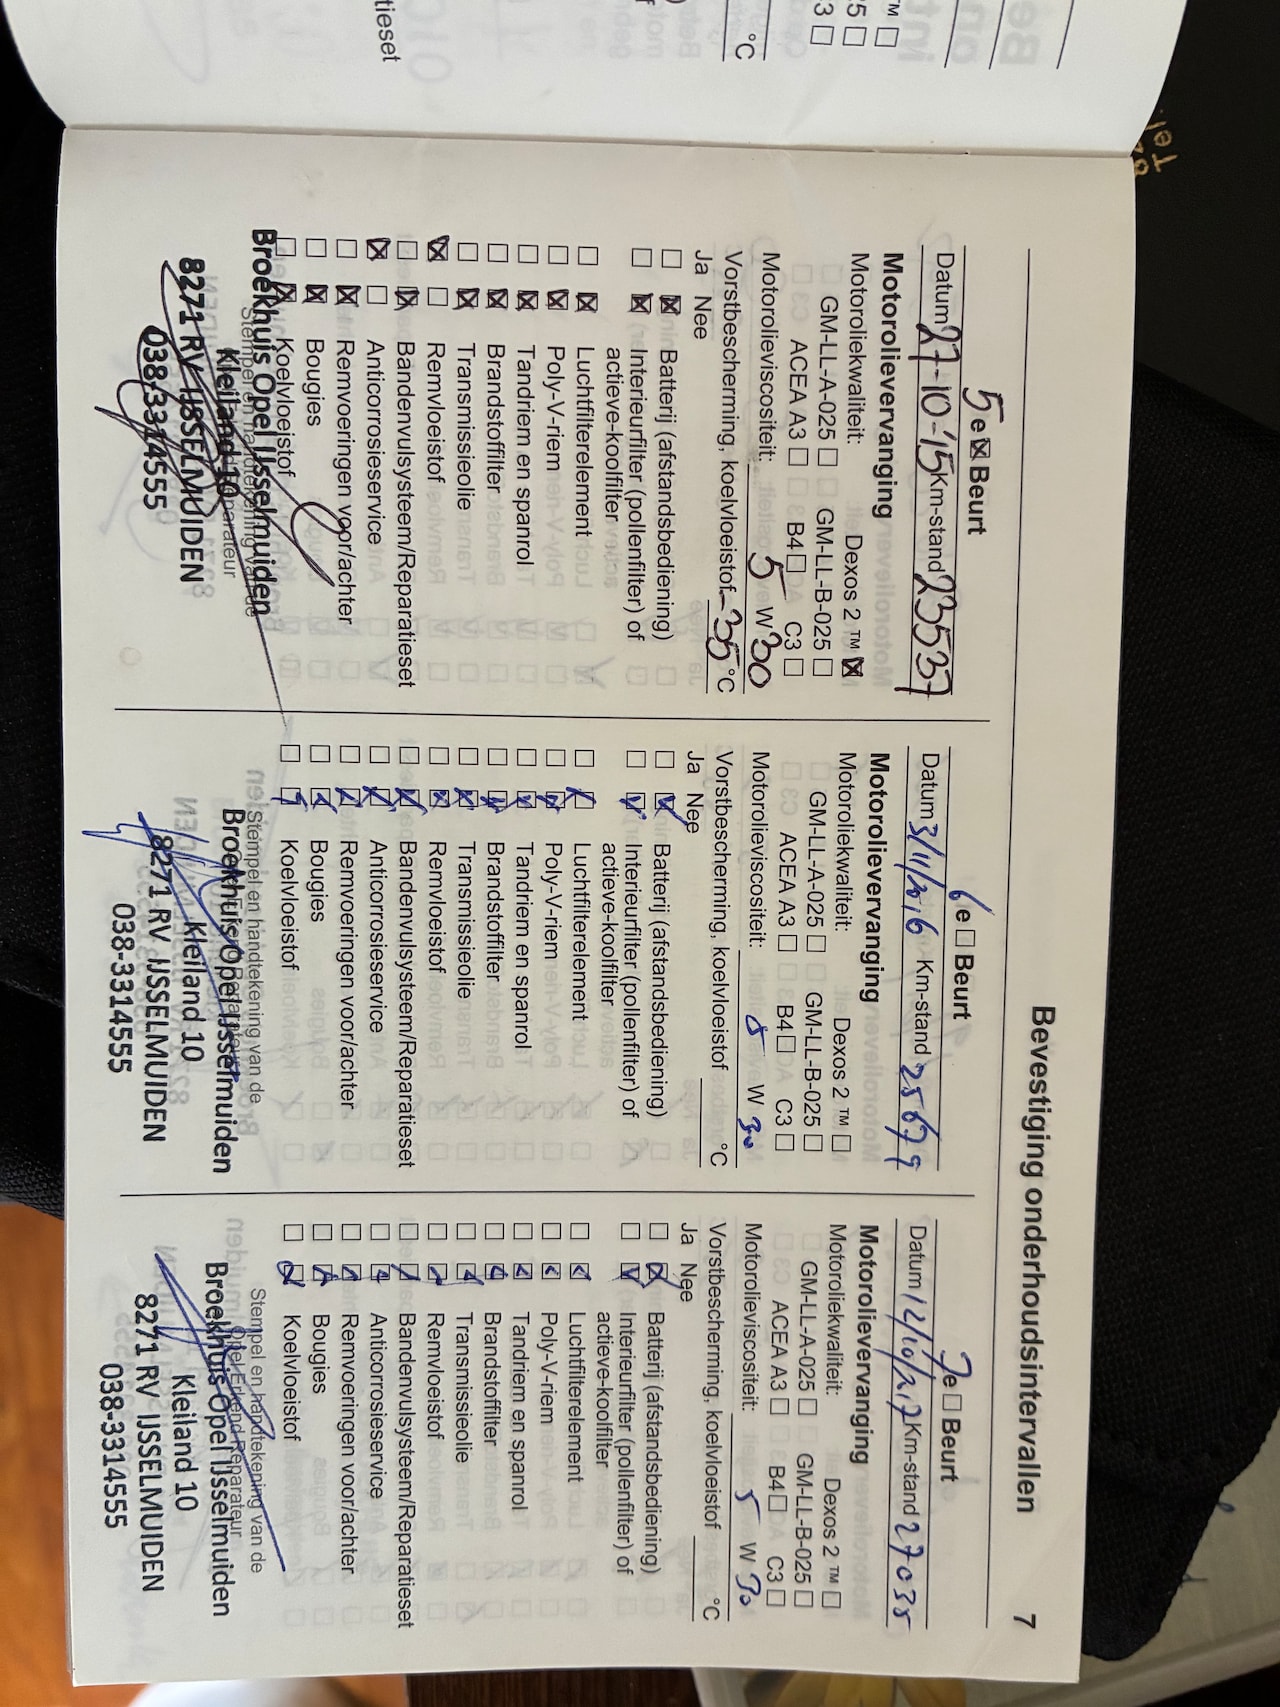 Bevestiging onderhoudsintervallen 7
5e ☒ Beurt
Datum 27-10-'15 Km-stand 23537
Motorolievervanging
Motoroliekwaliteit: Dexos 2 ™ ☒
GM-LL-A-025 ☐ GM-LL-B-025 ☐
ACEA A3 ☐ B4 ☐ C3 ☐
Motorolieviscositeit: 5 W 30
Vorstbescherming, koelvloeistof -35 °C
Ja Nee
☐ ☒ Batterij (afstandsbediening)
☐ ☒ Interieurfilter (pollenfilter) of
actieve-koolfilter
☐ ☒ Luchtfilterelement
☐ ☒ Poly-V-riem
☐ ☒ Tandriem en spanrol
☐ ☒ Brandstoffilter
☐ ☒ Transmissieolie
☒ ☐ Remvloeistof
☐ ☒ Bandenvulsysteem/Reparatieset
☒ ☐ Anticorrosieservice
☐ ☒ Remvoeringen voor/achter
☐ ☒ Bougies
☐ ☒ Koelvloeistof
Stempel en handtekening van de
Reparateur
Broekhuis Opel IJsselmuiden
Kleiland 10
8271 RV IJSSELMUIDEN
038-3314555
6e ☐ Beurt
Datum 3/11/2016 Km-stand 25679
Motorolievervanging
Motoroliekwaliteit: Dexos 2 ™ ☐
GM-LL-A-025 ☐ GM-LL-B-025 ☐
ACEA A3 ☐ B4 ☐ C3 ☐
Motorolieviscositeit: 5 W 30
Vorstbescherming, koelvloeistof °C
Ja Nee
☐ ☒ Batterij (afstandsbediening)
☐ ☒ Interieurfilter (pollenfilter) of
actieve-koolfilter
☐ ☒ Luchtfilterelement
☐ ☒ Poly-V-riem
☐ ☒ Tandriem en spanrol
☐ ☒ Brandstoffilter
☐ ☒ Transmissieolie
☐ ☒ Remvloeistof
☐ ☒ Bandenvulsysteem/Reparatieset
☐ ☒ Anticorrosieservice
☐ ☒ Remvoeringen voor/achter
☐ ☒ Bougies
☐ ☒ Koelvloeistof
Stempel en handtekening van de
Broekhuis Opel IJsselmuiden
Kleiland 10
8271 RV IJSSELMUIDEN
038-3314555
7e ☐ Beurt
Datum 12/10/2017 Km-stand 27035
Motorolievervanging
Motoroliekwaliteit: Dexos 2 ™ ☐
GM-LL-A-025 ☐ GM-LL-B-025 ☐
ACEA A3 ☐ B4 ☐ C3 ☐
Motorolieviscositeit: 5 W 30
Vorstbescherming, koelvloeistof °C
Ja Nee
☐ ☒ Batterij (afstandsbediening)
☐ ☒ Interieurfilter (pollenfilter) of
actieve-koolfilter
☐ ☒ Luchtfilterelement
☐ ☒ Poly-V-riem
☐ ☒ Tandriem en spanrol
☐ ☒ Brandstoffilter
☐ ☒ Transmissieolie
☐ ☒ Remvloeistof
☐ ☒ Bandenvulsysteem/Reparatieset
☐ ☒ Anticorrosieservice
☐ ☒ Remvoeringen voor/achter
☐ ☒ Bougies
☐ ☒ Koelvloeistof
Stempel en handtekening van de
Opel Erkend Reparateur
Broekhuis Opel IJsselmuiden
Kleiland 10
8271 RV IJSSELMUIDEN
038-3314555